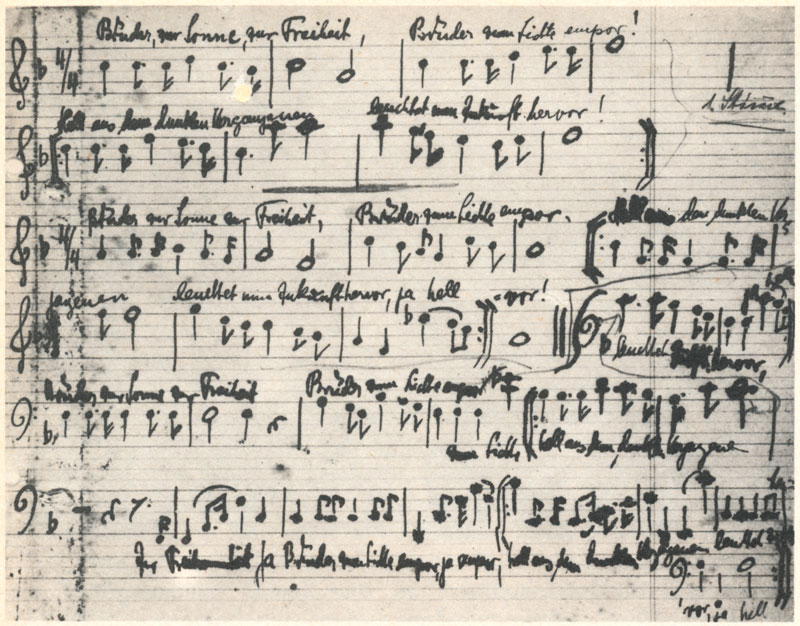 Brüder, zur Sonne, zur Freiheit, Brüder zum Lichte empor!
4/4
1. Stimme
Hell aus dem dunklen Vergangenen leuchtet nun Zukunft hervor!
Brüder zur Sonne zur Freiheit, Brüder zum Lichte empor. Hell aus dem dunklen Ver-
4/4
gangenen leuchtet nun Zukunft hervor, ja hell -vor!
leuchtet hervor,
Brüder zur Sonne zur Freiheit Brüder zum Lichte empor
zum Lichte Hell aus dem dunklen Vergangene
Zur Freiheit ja Brüder zum Lichte empor ja empor, hell aus dem dunklen Vergangenen leuchtet
vor, ja hell